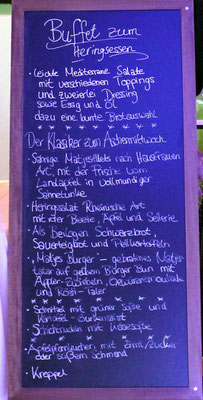 Buffet zum
Heringsessen
• leichte Mediterrane Salate
mit verschiedenen Toppings
und zweierlei Dressing
sowie Essig und Öl
dazu eine bunte Brotauswahl
Der Klassiker zum Aschermittwoch
• Sahnige Matjesfilets nach Hausfrauen
Art, mit der Frische vom
Landapfel in vollmundiger
Sahnetunke
• Heringsalat Rheinische Art
mit roter Beete, Apfel und Sellerie
• Als Beilagen Schwarzbrot,
Sauerteigbrot und Pellkartoffeln
• „Matjes Burger" - gebratenes Matjes
auf gelben Burger Bun mit
Apfel-Zwiebeln,
und Rösti-Taler
• Schnitzel mit grüner Soße und
Kartoffel-Gurkensalat
• mit
• Apfelpfannkuchen mit Zimt/Zucker
oder süßem Schmand
• Kreppel